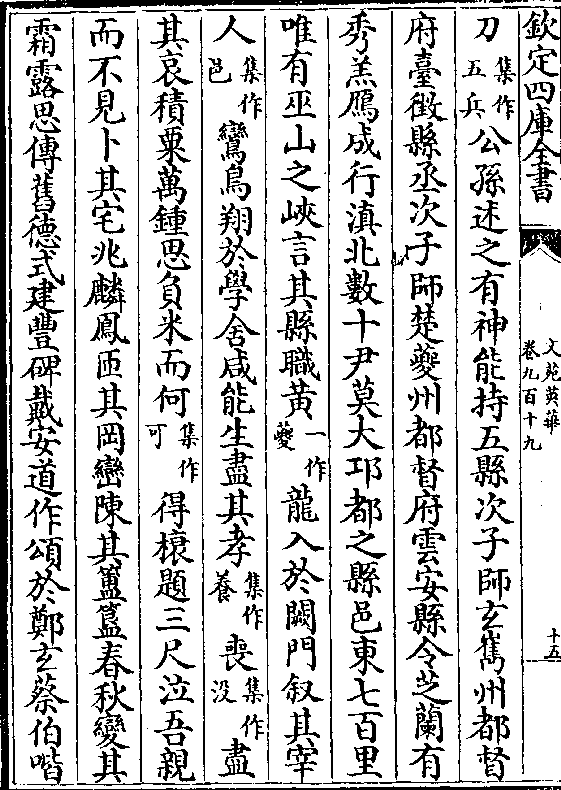 欽定四庫全書
文苑英華
卷九百十九
十五
刀集作五兵公孫述之有神能持五縣次子師玄嶲州都督
府臺徵縣丞次子師楚夔州都督府雲安縣令芝蘭有
秀羔鴈成行滇北數十尹莫大卭都之縣邑東七百里
唯有巫山之峽言其縣職黄一作夔龍入於闕門叙其宰
人集作邑鸞鳥翔於學舍咸能生盡其孝集作養喪集作没盡
其哀積粟萬鍾思負米而何集作可得榱題三尺泣吾親
而不見卜其宅兆麟鳳匝其岡巒陳其簠簋春秋變其
霜露思傳舊德式建豐碑戴安道作頌於鄭玄蔡伯喈